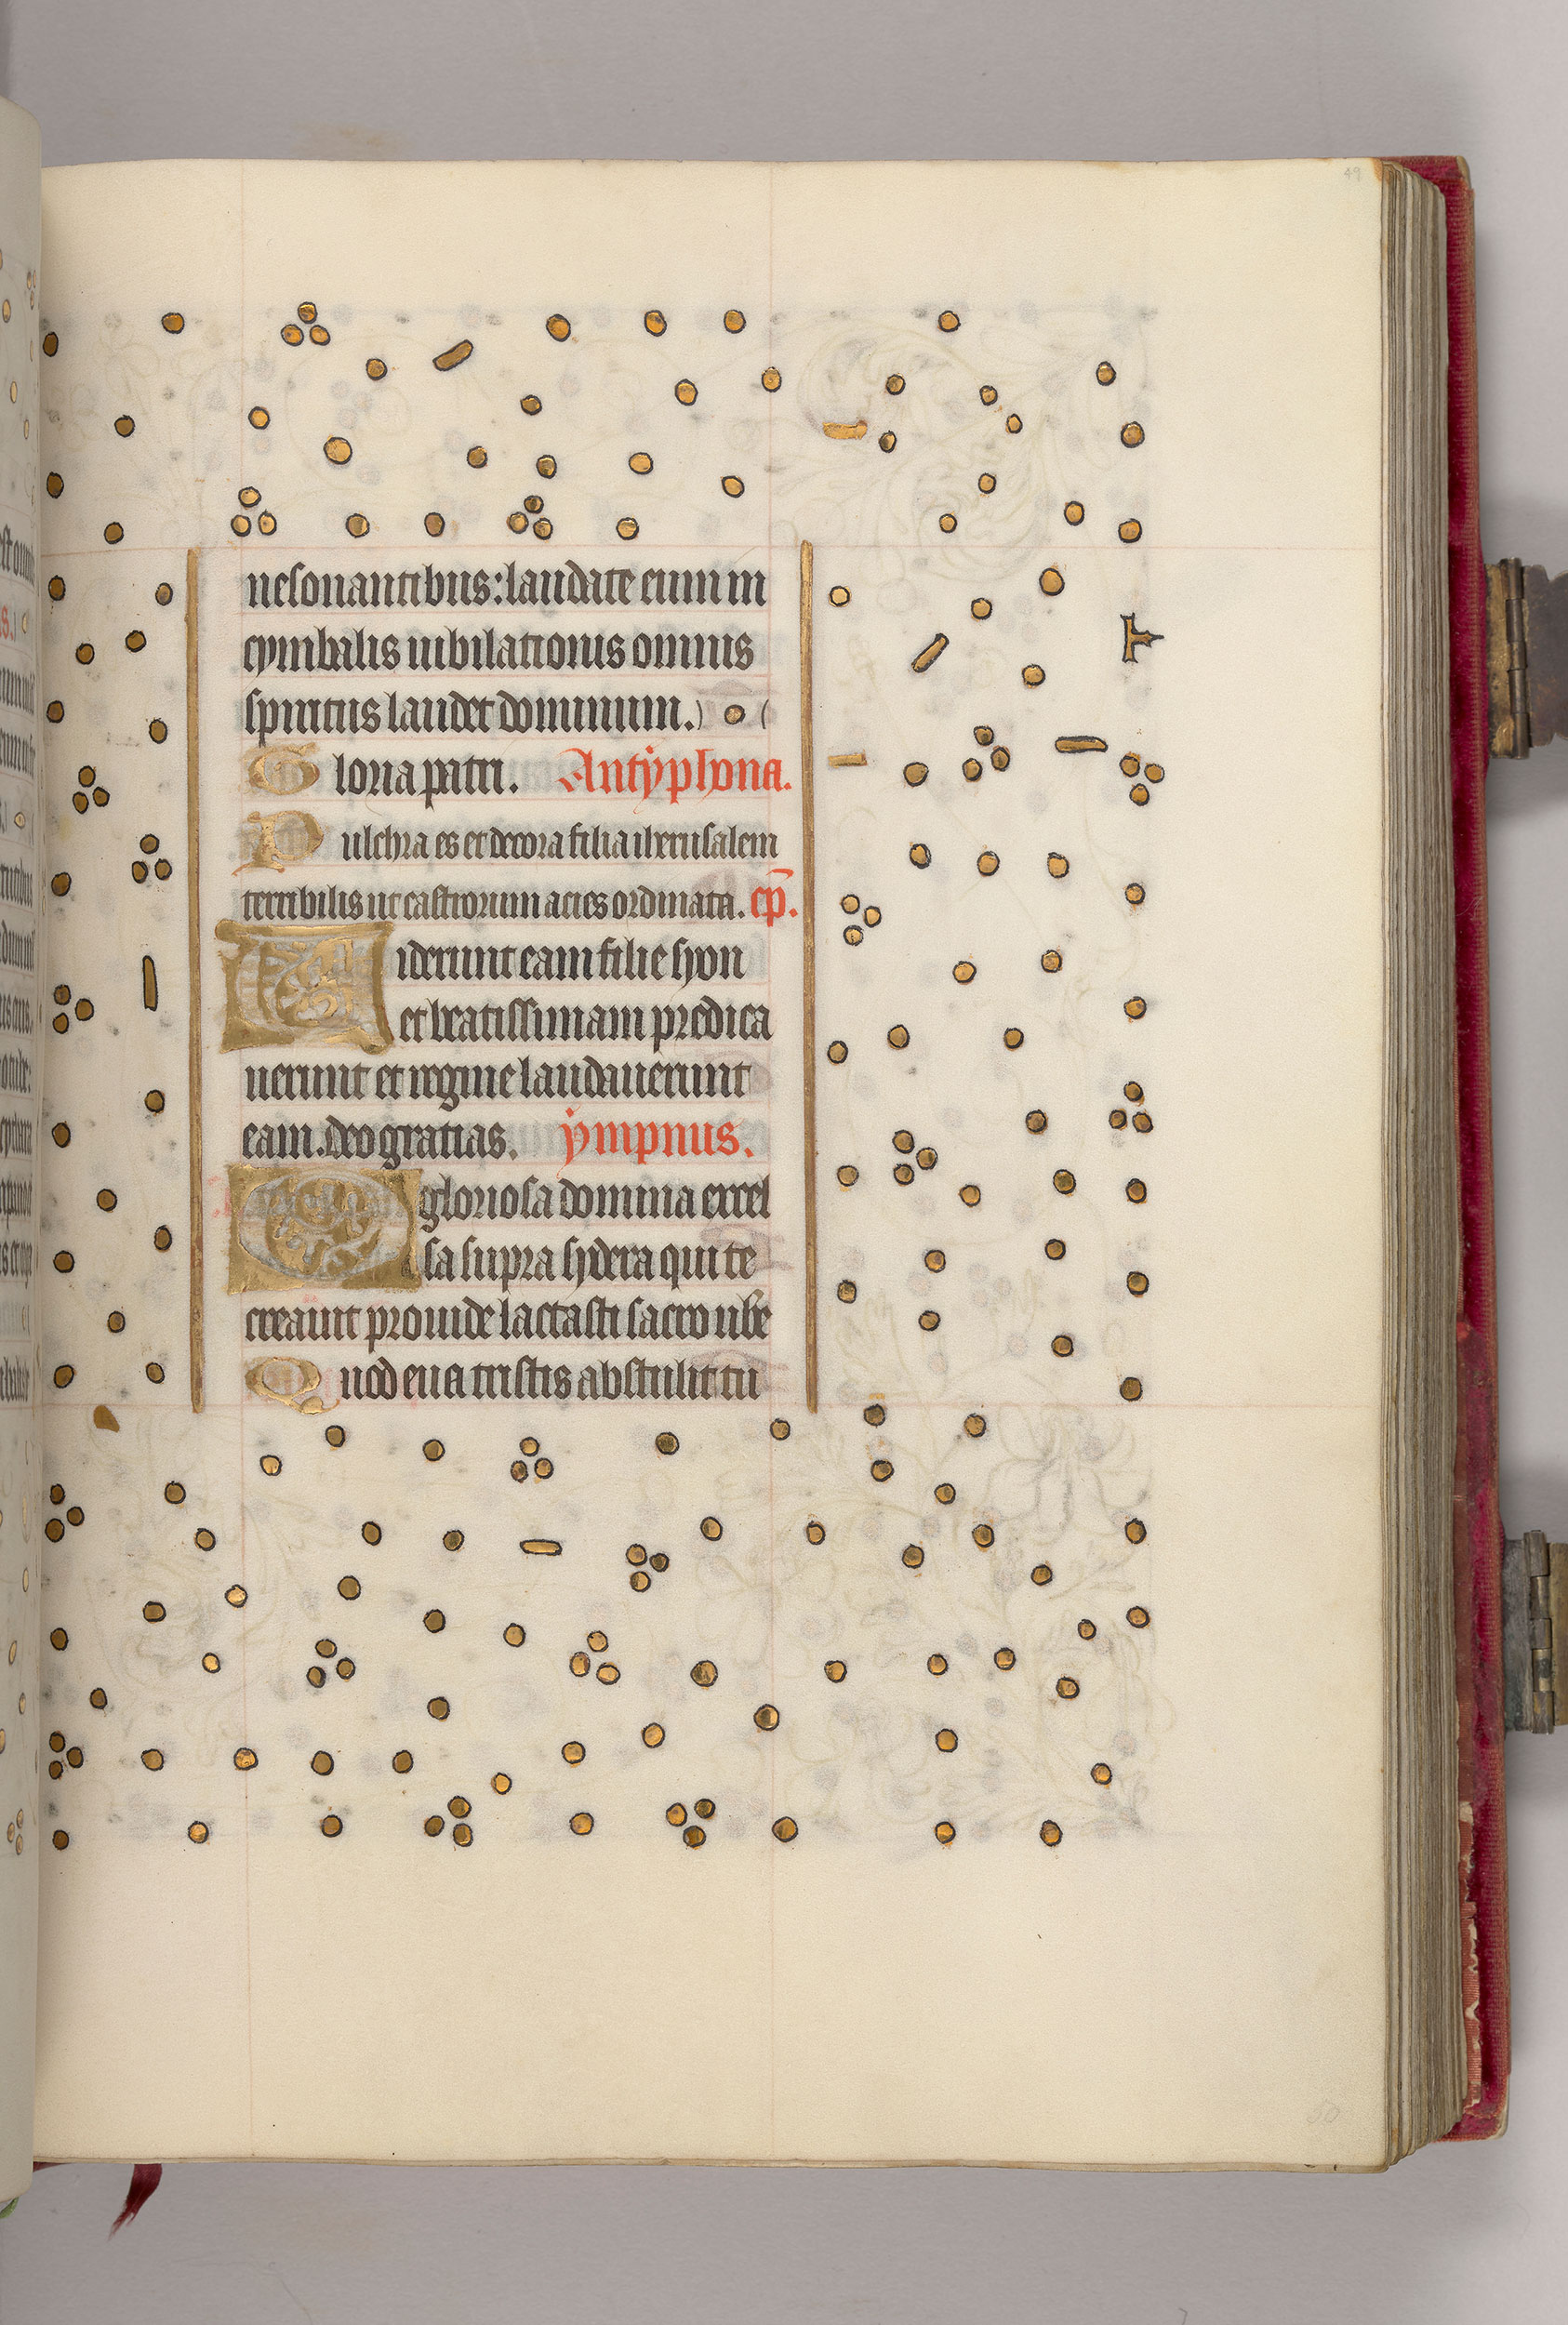 nesonantibus: laudate eum in
cymbalis iubilationis omnis
spiritus laudet dominum.
Gloria patri. Antyphona.
Pulchra es et decora filia iherusalem
terribilis ut castrorum acies ordinata. cp̄.
Viderunt eam filie syon
et beatissimam predica
uerunt et regine laudauerunt
eam. deo gratias. ympnus.
O gloriosa domina excel
sa supra sydera qui te
creauit prouide lactasti sacro ube
Quod eua tristis abstulit tu
49
50